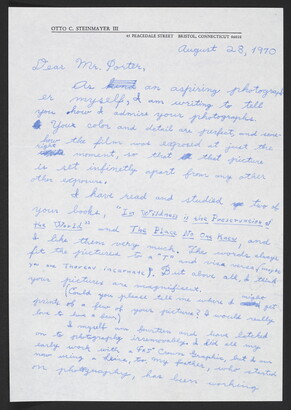 OTTO C. STEINMAYER III
47 PEACEDALE STREET BRISTOL, CONNECTICUT 06010
August 28, 1970
Dear Mr. Porter,
As an aspiring photograph-
er myself, I am writing to tell
you how I admire your photographs.
Your color and detail are perfect, and some-
how the film was exposed at just the
right moment, so that that picture
is set infinitely apart from any other
other exposure.
I have read and studied two of
your books, "In Wildness is the Preservation of
the World" and The Place No One Knew, and
I like them very much. The words always
fit the pictures to a "T" and vice versa (maybe
I'm on Thoreau incarnate!). But above all, I think
your pictures are magnificent.
(Could you please tell me where I might get
prints of a few of your pictures? I would really
love to buy a few)
I myself am fourteen and have latched
on to photography irremovably. I did all my
early work with a 4x5" Crown Graphic, but I am
now using a Leica, to my father, who started
me on photography, has been working